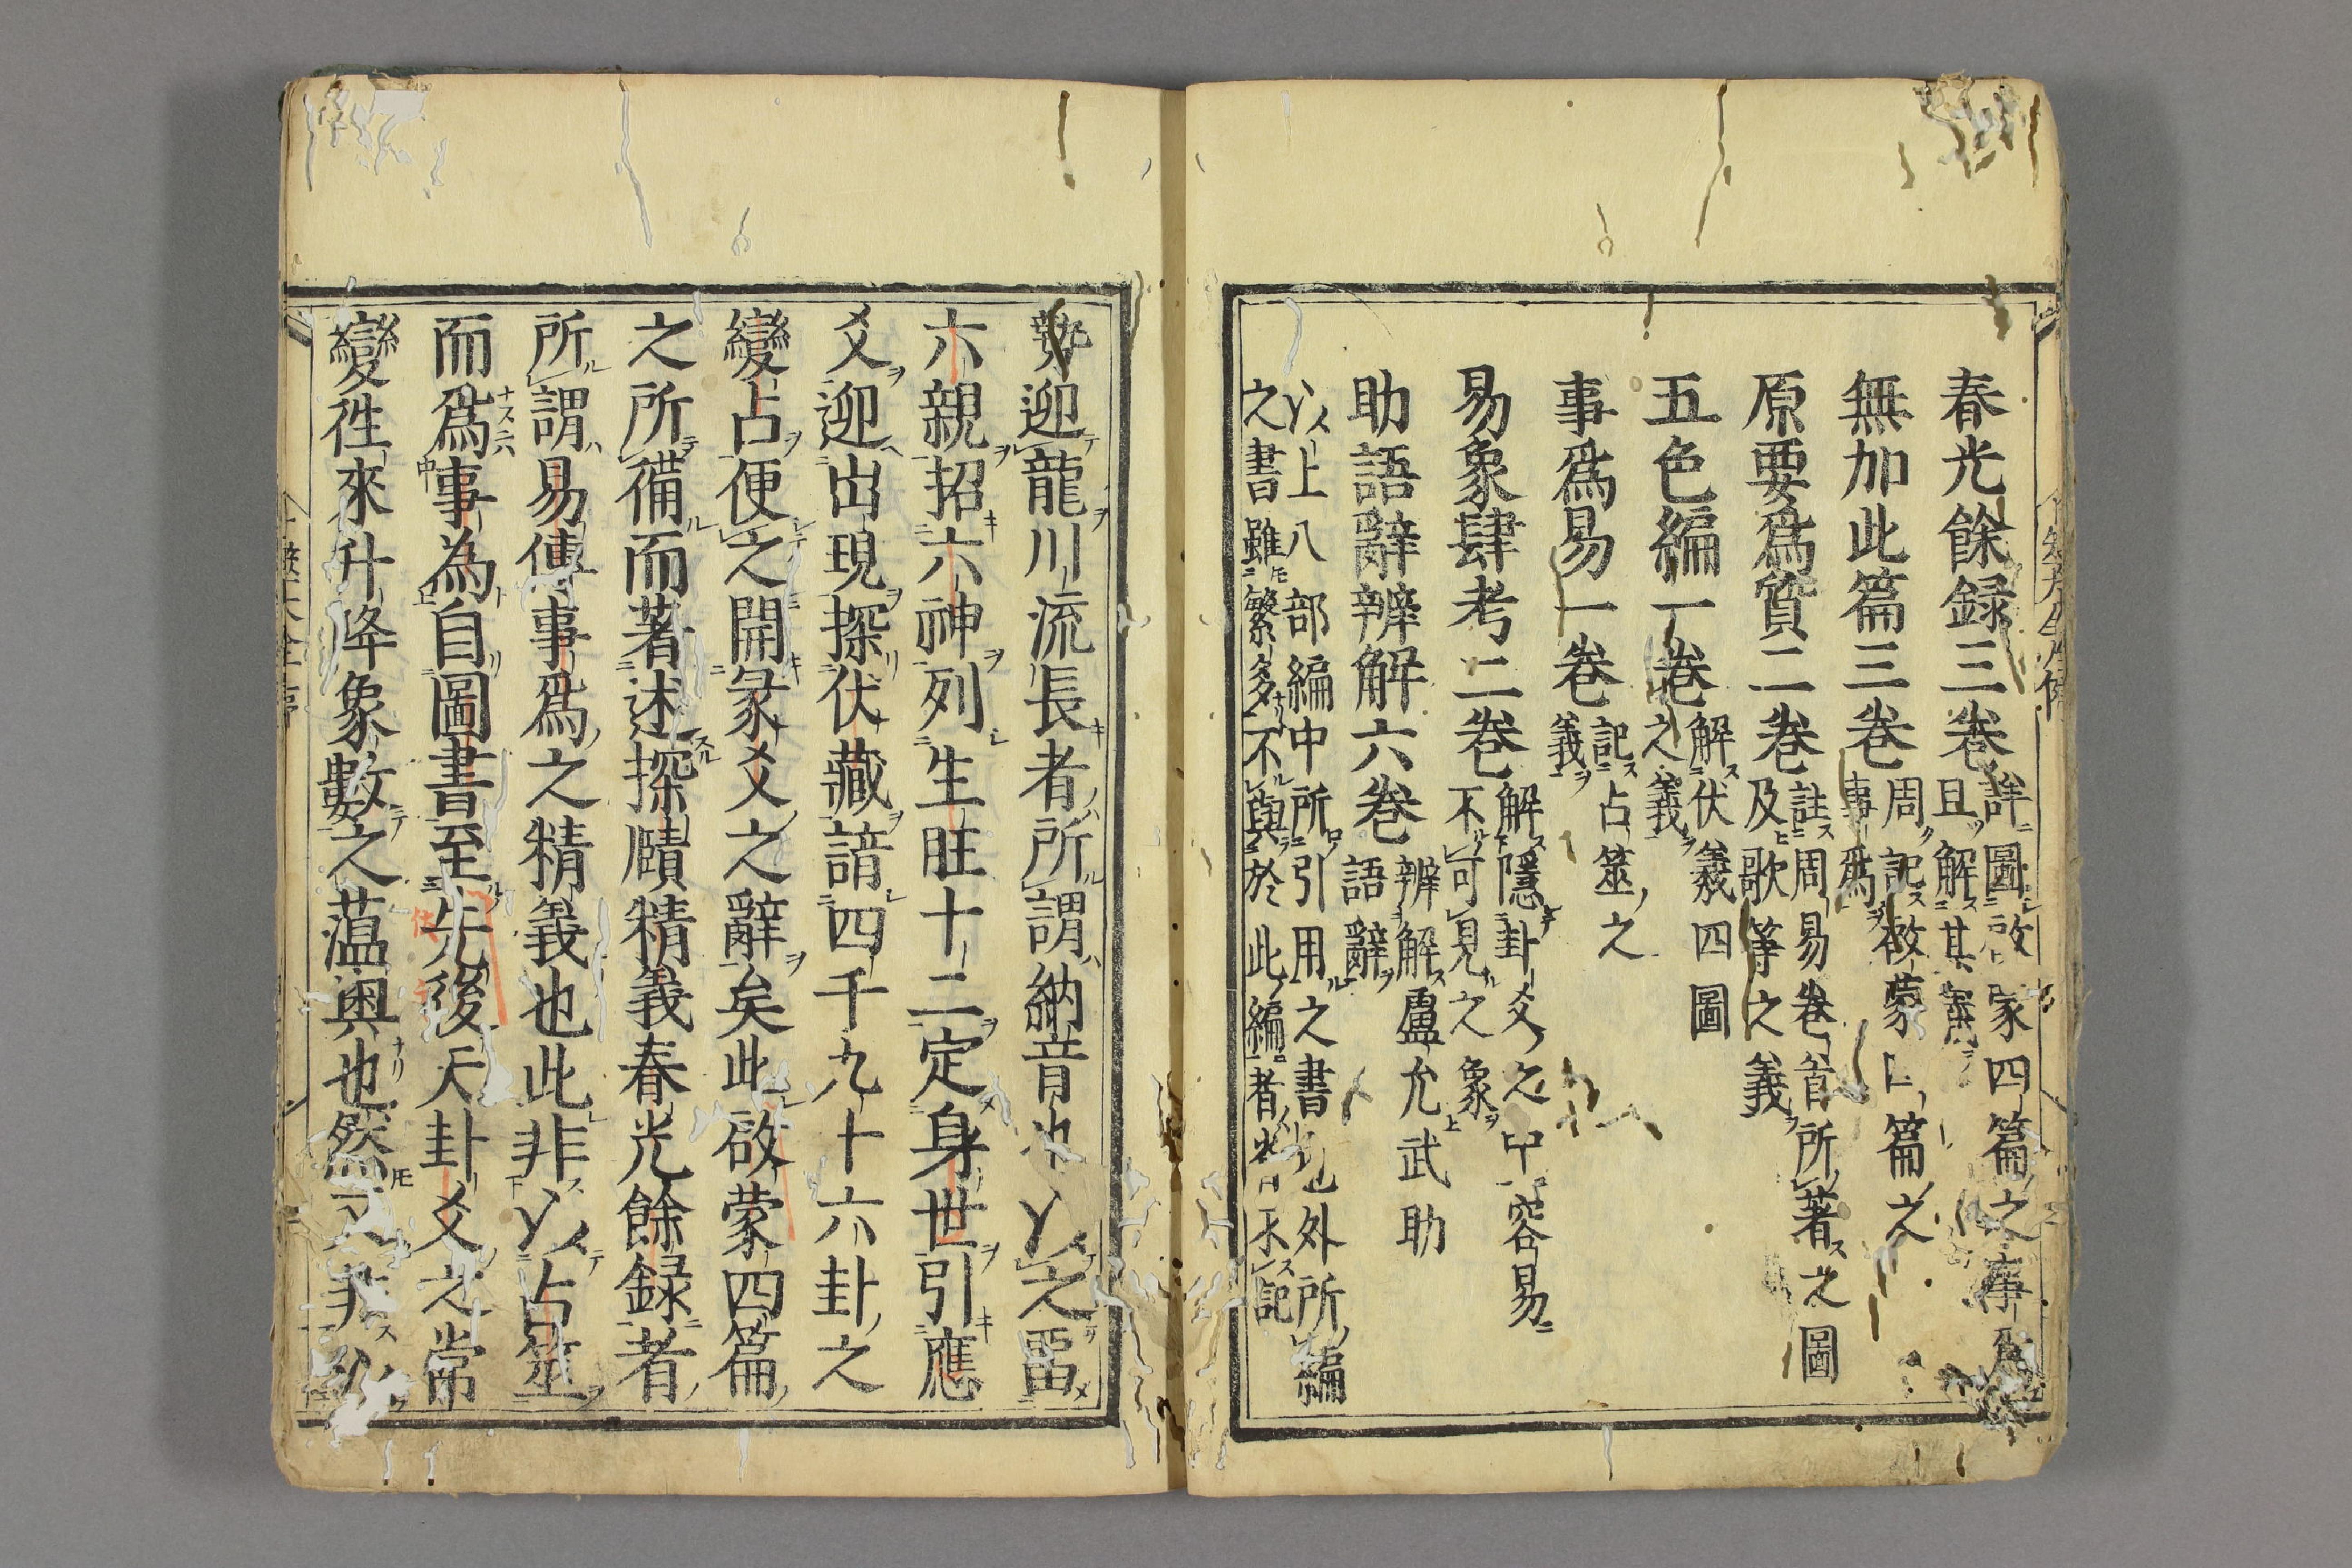 春光餘録三卷 詳圖啓家四篇之事爲
且解其義
無加此篇三卷 周記啟蒙四篇之
事爲
原要爲質二卷 註周易卷首所著之圖
及歌等之義
五色編一卷 解伏羲四圖
之義
事爲易一卷 記占筮之
義
易象肆考二卷 解隱卦爻之中容易
不可見之象
助語辭辨解六卷 辨解盧允武助
語辭
以上八部編中所引用之書也外所編
之書雖繁多不與於此編者皆不記
迎龍川流長者所謂納音也以之畱
六親招六神列生旺十二定身世引應
爻迎出現探伏藏諳四千九十六卦之
變占便之開彖爻之辭矣此啟蒙四篇
之所備而著述探賾精義春光餘録者
所謂易傳事爲之精義也此非以占筮
而爲事為自圖書至先後天卦爻之常
變徃來升降象數之薀奥也然又非以